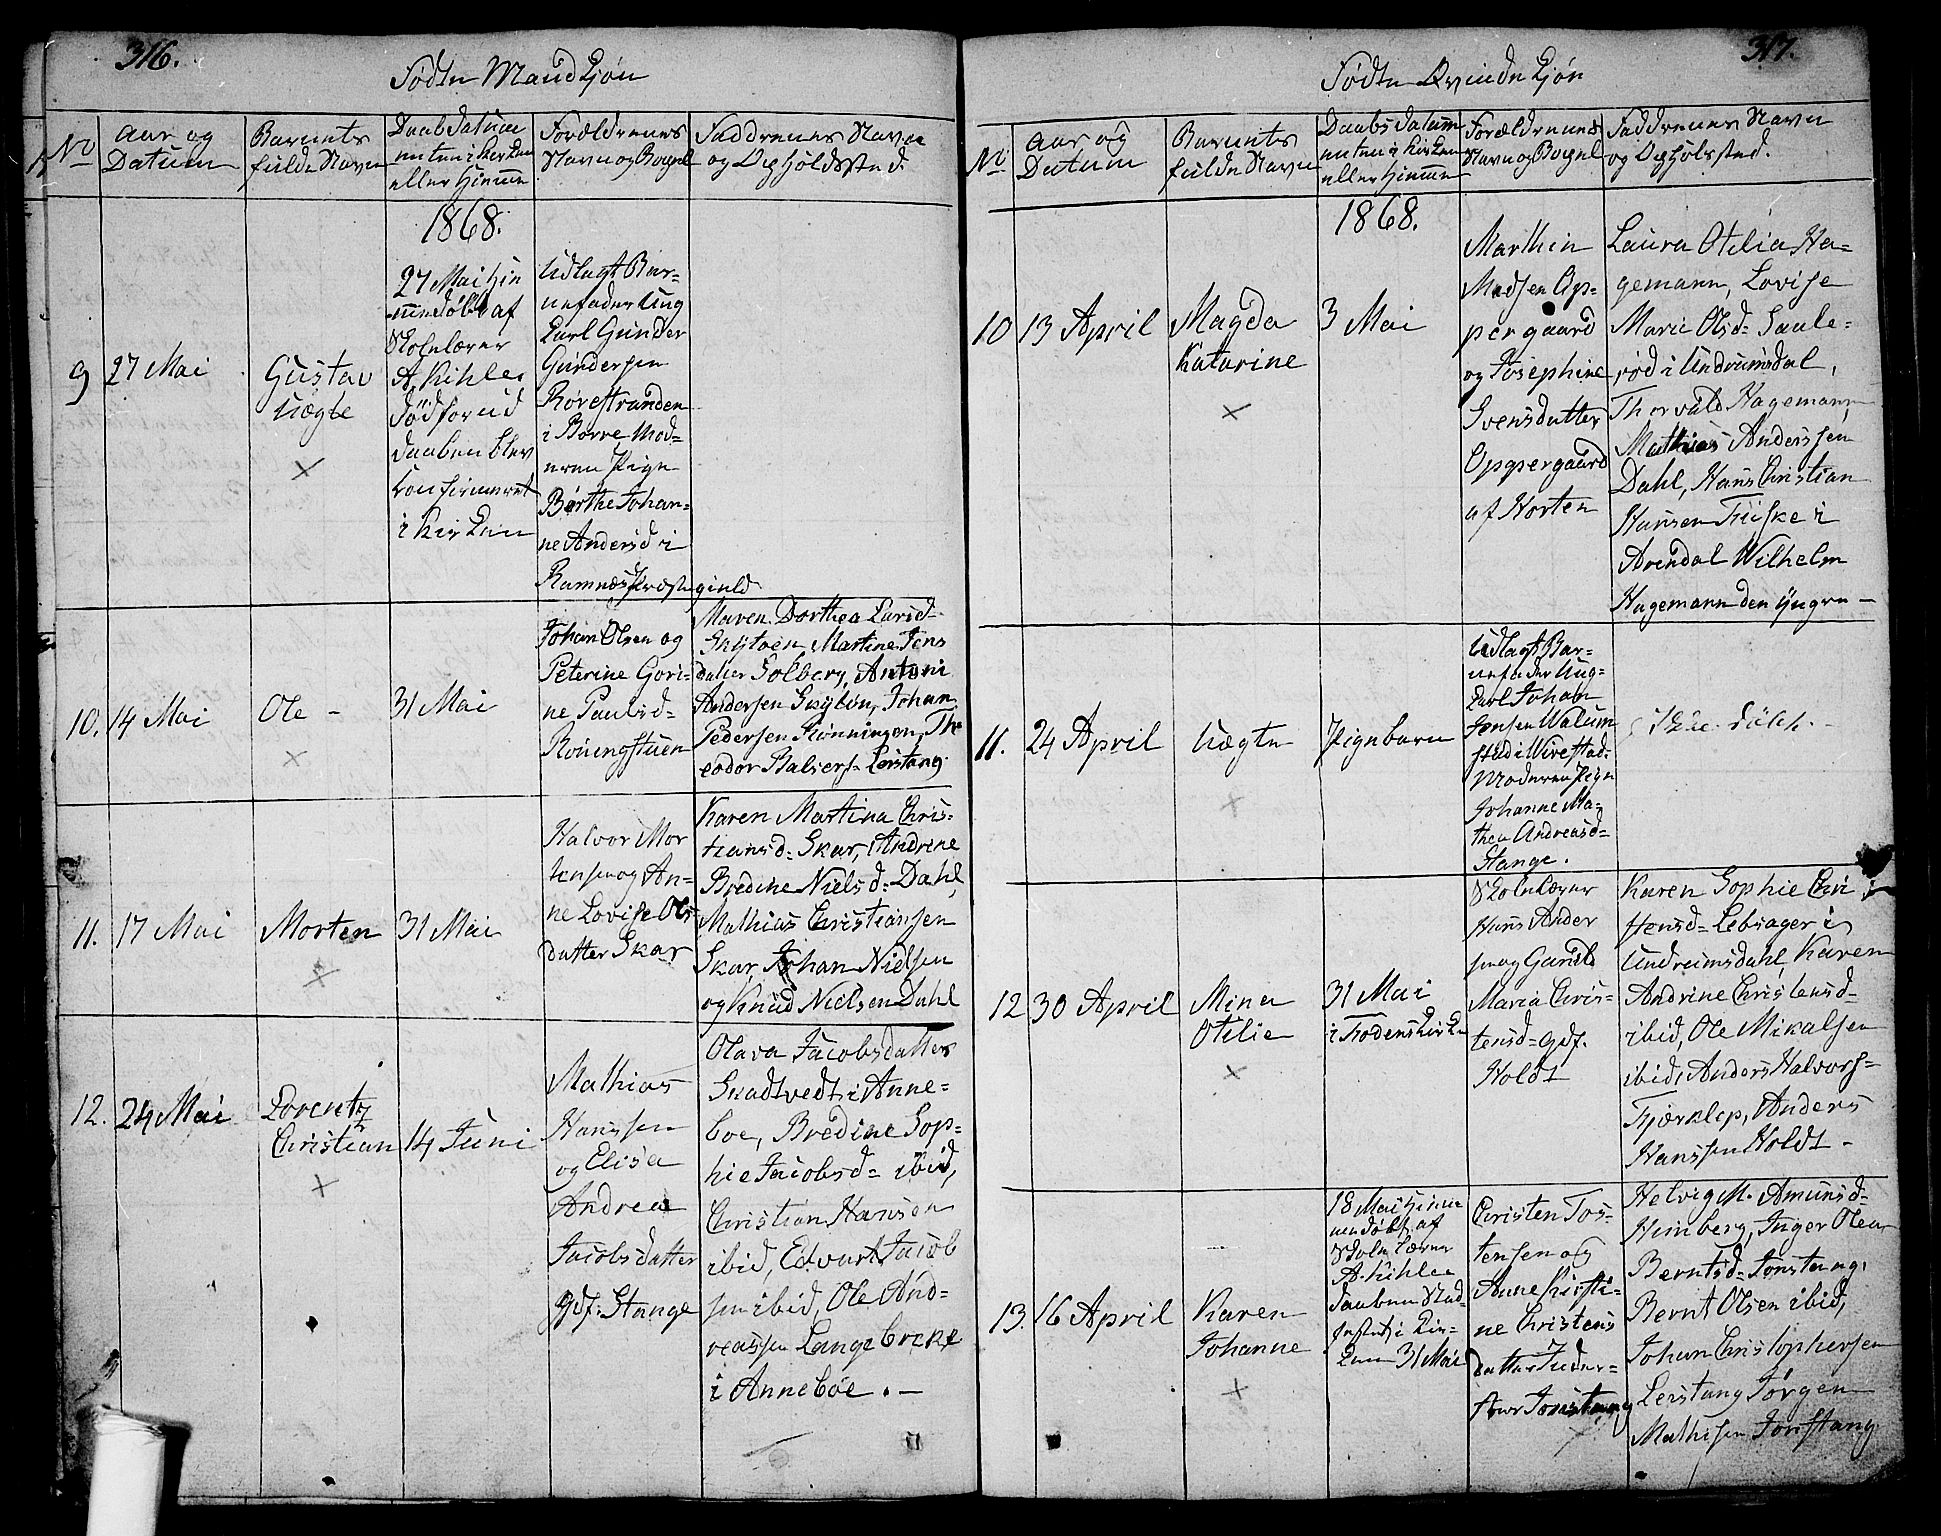 316.
Fødte Mandkjøn
No
Aar og
Datum
Barnets
fulde Navn
Daabsdatum
enten i Kirken
eller Hjemme
Forældrenes
Navn og Bopæl
Faddrenes Navn
og Opholdssted.
1868.
9
27 Mai
Gustav
Uægte
27 Mai hje
mmedøbt af
Skolelærer
A. Kihle.
død forud
daaben blev
Confirmeret
i Kirken
Udlagt Bar-
nefader Ung
Carl Gunder
Gundersen
Rørestranden
i Borre Mod-
eren Pige
Børthe Johan-
ne Andersd i
Ramnæs Præstegield
10.
14 Mai
Ole -
31 Mai
Johan Olsen og
Peterine Gori-
ne Paulsd-
Maren Dorthea Larsd-
Martine Jens
datter Solberg, Antoni
Andersen Johan
Pedersen The
odor Leistang
11.
17 Mai
Morten
31 Mai
Halvor Mor
tensen og An-
ne Lovise Ols
datter Skar
Karen Martina Chris-
tiansd- Skar, Andrine
Bredine Nielsd- Dahl,
Mathias Christiansen
Skar, Johan Nielsen
og Knud Nielsen Dahl
12.
24 Mai
Lorentz
Christian
14 Juni
Mathias
Hanssen
og Elisa
Andrea
Jacobsdatter
Gdf. Stange
Olava Jacobsdatter
Skadtvedt i Anne-
boe, Bredine Sop-
hie Jacobsd- ibid,
Christian Hansen
ibid, Edvart Jacob
sen ibid, Ole And-
reassen Langebrekk
i Anneboe. -
317.
Fødte Qvindekjøn
No
Aar og
Datum
Barnets
fulde Navn
Daabsdatum
enten i Kirken
eller Hjemme
Forældrenes
Navn og Bopæl
Faddrenes Navn
og Opholdssted.
1868.
10
13 April
Magda
Katarine
3 Mai
Marthin
Madsen Op-
pergaard
og Josephine
Svensdatter
Oppergaard
af Horten
Laura Otilia Ha-
gemann, Lovise
Marie Olsd- Saule-
rød i Undrumsdal,
Thorvald Hagemann,
Mathias Anderssen
Dahl, Hans Christian
Hansen Friske i
Arendal Wilhelm
Hagemann den yngre -
11.
24 April
Uægte
Pigebarn
Udlagt Bar-
nefader Ung-
Carl Johan
Jensen Walum
Moderen Pige
Johanne Ma-
thea Andreasd-
Stange.
Ikke døbt. -
12
30 April
Mina
Otilie
31 Mai
i Frodenskirken
Skolelærer
Hans Ander
sen og
Maria Chris-
tensd- gdf.
Holdt
Karen Sophie Chri
stensd- Lebsager i
Undrumsdahl, Karen
Andrine Christensd-
ibid, Ole Mikalsen
ibid, Anders Halvors-
Anders
Hanssen Holdt -
13.
16 April
Karen
Johanne
18 Mai hjem
medøbt af
Skolelærer
A. Kihle
Daaben Stad-
festet i Kir-
ken 31 Mai
Christen Tos-
tensen og
Anne Kirsti-
ne Christens
datter
Helvig M. Amunsd-
Himberg, Inger Olea
Berntsd-
Bernt Olsen ibid,
Johan Christophersen
Leistang Jørgen
Mathisen